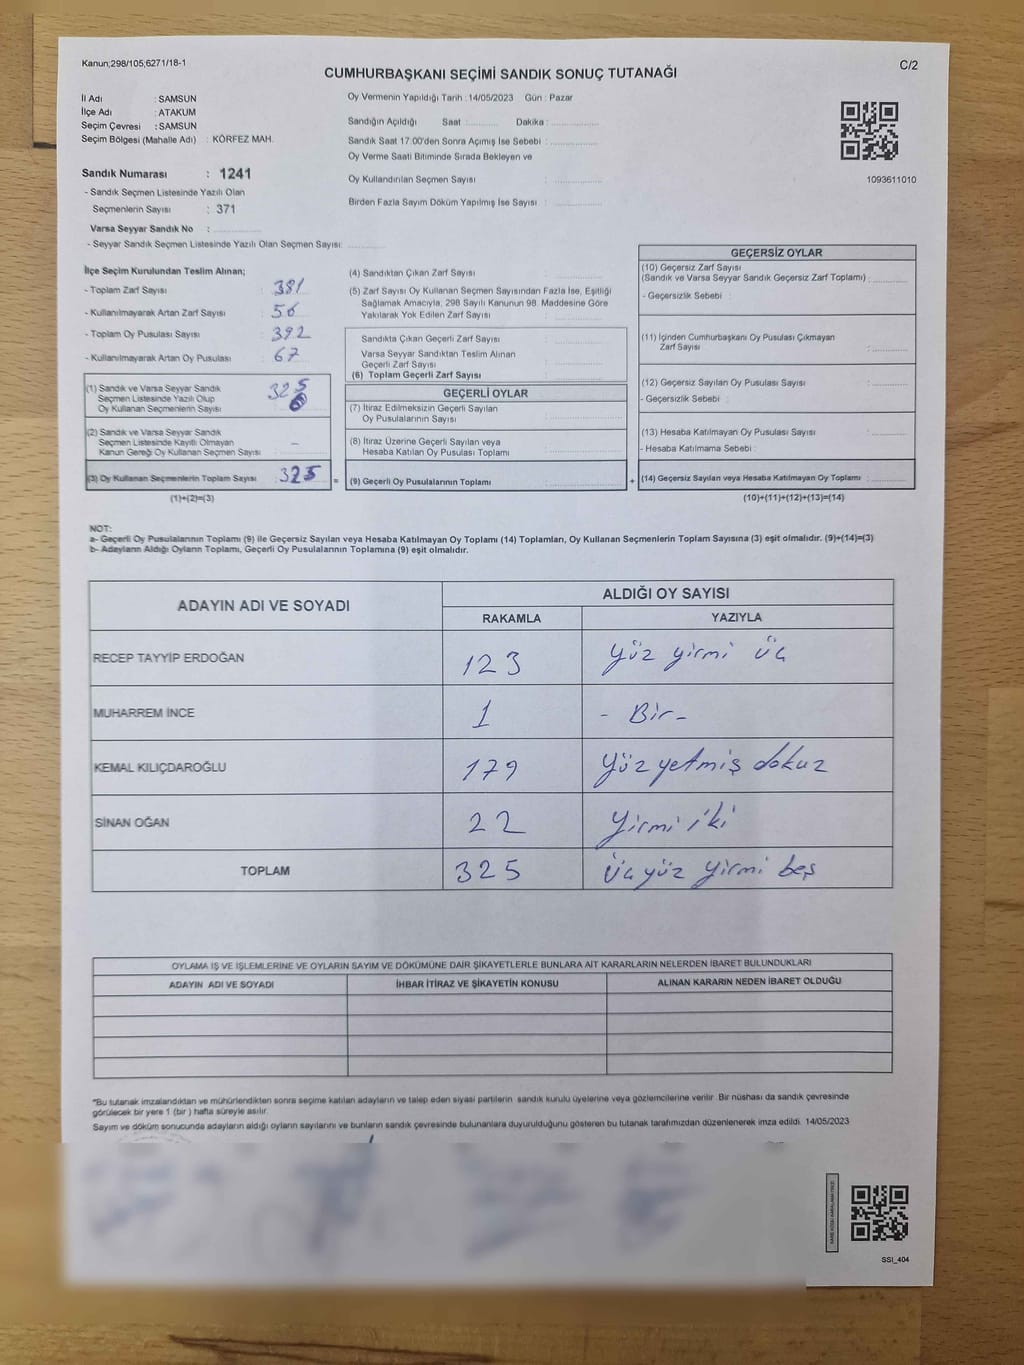 Kanun;298/105;6271/18-1
C/2
CUMHURBAŞKANI SEÇİMİ SANDIK SONUÇ TUTANAĞI
İl Adı : SAMSUN
İlçe Adı : ATAKUM
Seçim Çevresi : SAMSUN
Seçim Bölgesi (Mahalle Adı) : KÖRFEZ MAH.
Oy Vermenin Yapıldığı Tarih : 14/05/2023 Gün : Pazar
Sandığın Açıldığı Saat : Dakika :
Sandık Saat 17:00'den Sonra Açımış İse Sebebi :
Oy Verme Saati Bitiminde Sırada Bekleyen ve
Oy Kullandırılan Seçmen Sayısı :
Birden Fazla Sayım Döküm Yapılmış İse Sayısı :
1093611010
Sandık Numarası : 1241
- Sandık Seçmen Listesinde Yazılı Olan
Seçmenlerin Sayısı : 371
Varsa Seyyar Sandık No :
- Seyyar Sandık Seçmen Listesinde Yazılı Olan Seçmen Sayısı:
İlçe Seçim Kurulundan Teslim Alınan;
- Toplam Zarf Sayısı : 381
- Kullanılmayarak Artan Zarf Sayısı : 56
- Toplam Oy Pusulası Sayısı : 392
- Kullanılmayarak Artan Oy Pusulası : 67
(1) Sandık ve Varsa Seyyar Sandık
Seçmen Listesinde Yazılı Olup
Oy Kullanan Seçmenlerin Sayısı : 325
(2) Sandık ve Varsa Seyyar Sandık
Seçmen Listesinde Kayıtlı Olmayan
Kanun Gereği Oy Kullanan Seçmen Sayısı : –
(3) Oy Kullanan Seçmenlerin Toplam Sayısı : 325
(1)+(2)=(3)
(4) Sandıktan Çıkan Zarf Sayısı :
(5) Zarf Sayısı Oy Kullanan Seçmen Sayısından Fazla İse, Eşitliği
Sağlamak Amacıyla, 298 Sayılı Kanunun 98. Maddesine Göre
Yakılarak Yok Edilen Zarf Sayısı :
Sandıkta Çıkan Geçerli Zarf Sayısı :
Varsa Seyyar Sandıktan Teslim Alınan
Geçerli Zarf Sayısı :
(6) Toplam Geçerli Zarf Sayısı :
GEÇERLİ OYLAR
(7) İtiraz Edilmeksizin Geçerli Sayılan
Oy Pusulalarının Sayısı :
(8) İtiraz Üzerine Geçerli Sayılan veya
Hesaba Katılan Oy Pusulası Toplamı :
= (9) Geçerli Oy Pusulalarının Toplamı :
GEÇERSİZ OYLAR
(10) Geçersiz Zarf Sayısı
(Sandık ve Varsa Seyyar Sandık Geçersiz Zarf Toplamı) :
- Geçersizlik Sebebi :
(11) İçinden Cumhurbaşkanı Oy Pusulası Çıkmayan
Zarf Sayısı :
(12) Geçersiz Sayılan Oy Pusulası Sayısı :
- Geçersizlik Sebebi :
(13) Hesaba Katılmayan Oy Pusulası Sayısı :
- Hesaba Katılmama Sebebi :
+ (14) Geçersiz Sayılan veya Hesaba Katılmayan Oy Toplamı :
(10)+(11)+(12)+(13)=(14)
NOT:
a- Geçerli Oy Pusulalarının Toplamı (9) ile Geçersiz Sayılan veya Hesaba Katılmayan Oy Toplamı (14) Toplamları, Oy Kullanan Seçmenlerin Toplam Sayısına (3) eşit olmalıdır. (9)+(14)=(3)
b- Adayların Aldığı Oyların Toplamı, Geçerli Oy Pusulalarının Toplamına (9) eşit olmalıdır.
ADAYIN ADI VE SOYADI ALDIĞI OY SAYISI
RAKAMLA YAZIYLA
RECEP TAYYİP ERDOĞAN 123 Yüz yirmi üç
MUHARREM İNCE 1 - Bir -
KEMAL KILIÇDAROĞLU 179 Yüz yetmiş dokuz
SİNAN OĞAN 22 Yirmi iki
TOPLAM 325 Üç yüz yirmi beş
OYLAMA İŞ VE İŞLEMLERİNE VE OYLARIN SAYIM VE DÖKÜMÜNE DAİR ŞİKAYETLERLE BUNLARA AİT KARARLARIN NELERDEN İBARET BULUNDUKLARI
ADAYIN ADI VE SOYADI İHBAR İTİRAZ VE ŞİKAYETİN KONUSU ALINAN KARARIN NEDEN İBARET OLDUĞU
*Bu tutanak imzalandıktan ve mühürlendikten sonra seçime katılan adayların ve talep eden siyasi partilerin sandık kurulu üyelerine veya gözlemcilerine verilir. Bir nüshası da sandık çevresinde
görülecek bir yere 1 (bir ) hafta süreyle asılır.
Sayım ve döküm sonucunda adayların aldığı oyların sayılarını ve bunların sandık çevresinde bulunanlara duyurulduğunu gösteren bu tutanak tarafımızdan düzenlenerek imza edildi. 14/05/2023
SSİ_404